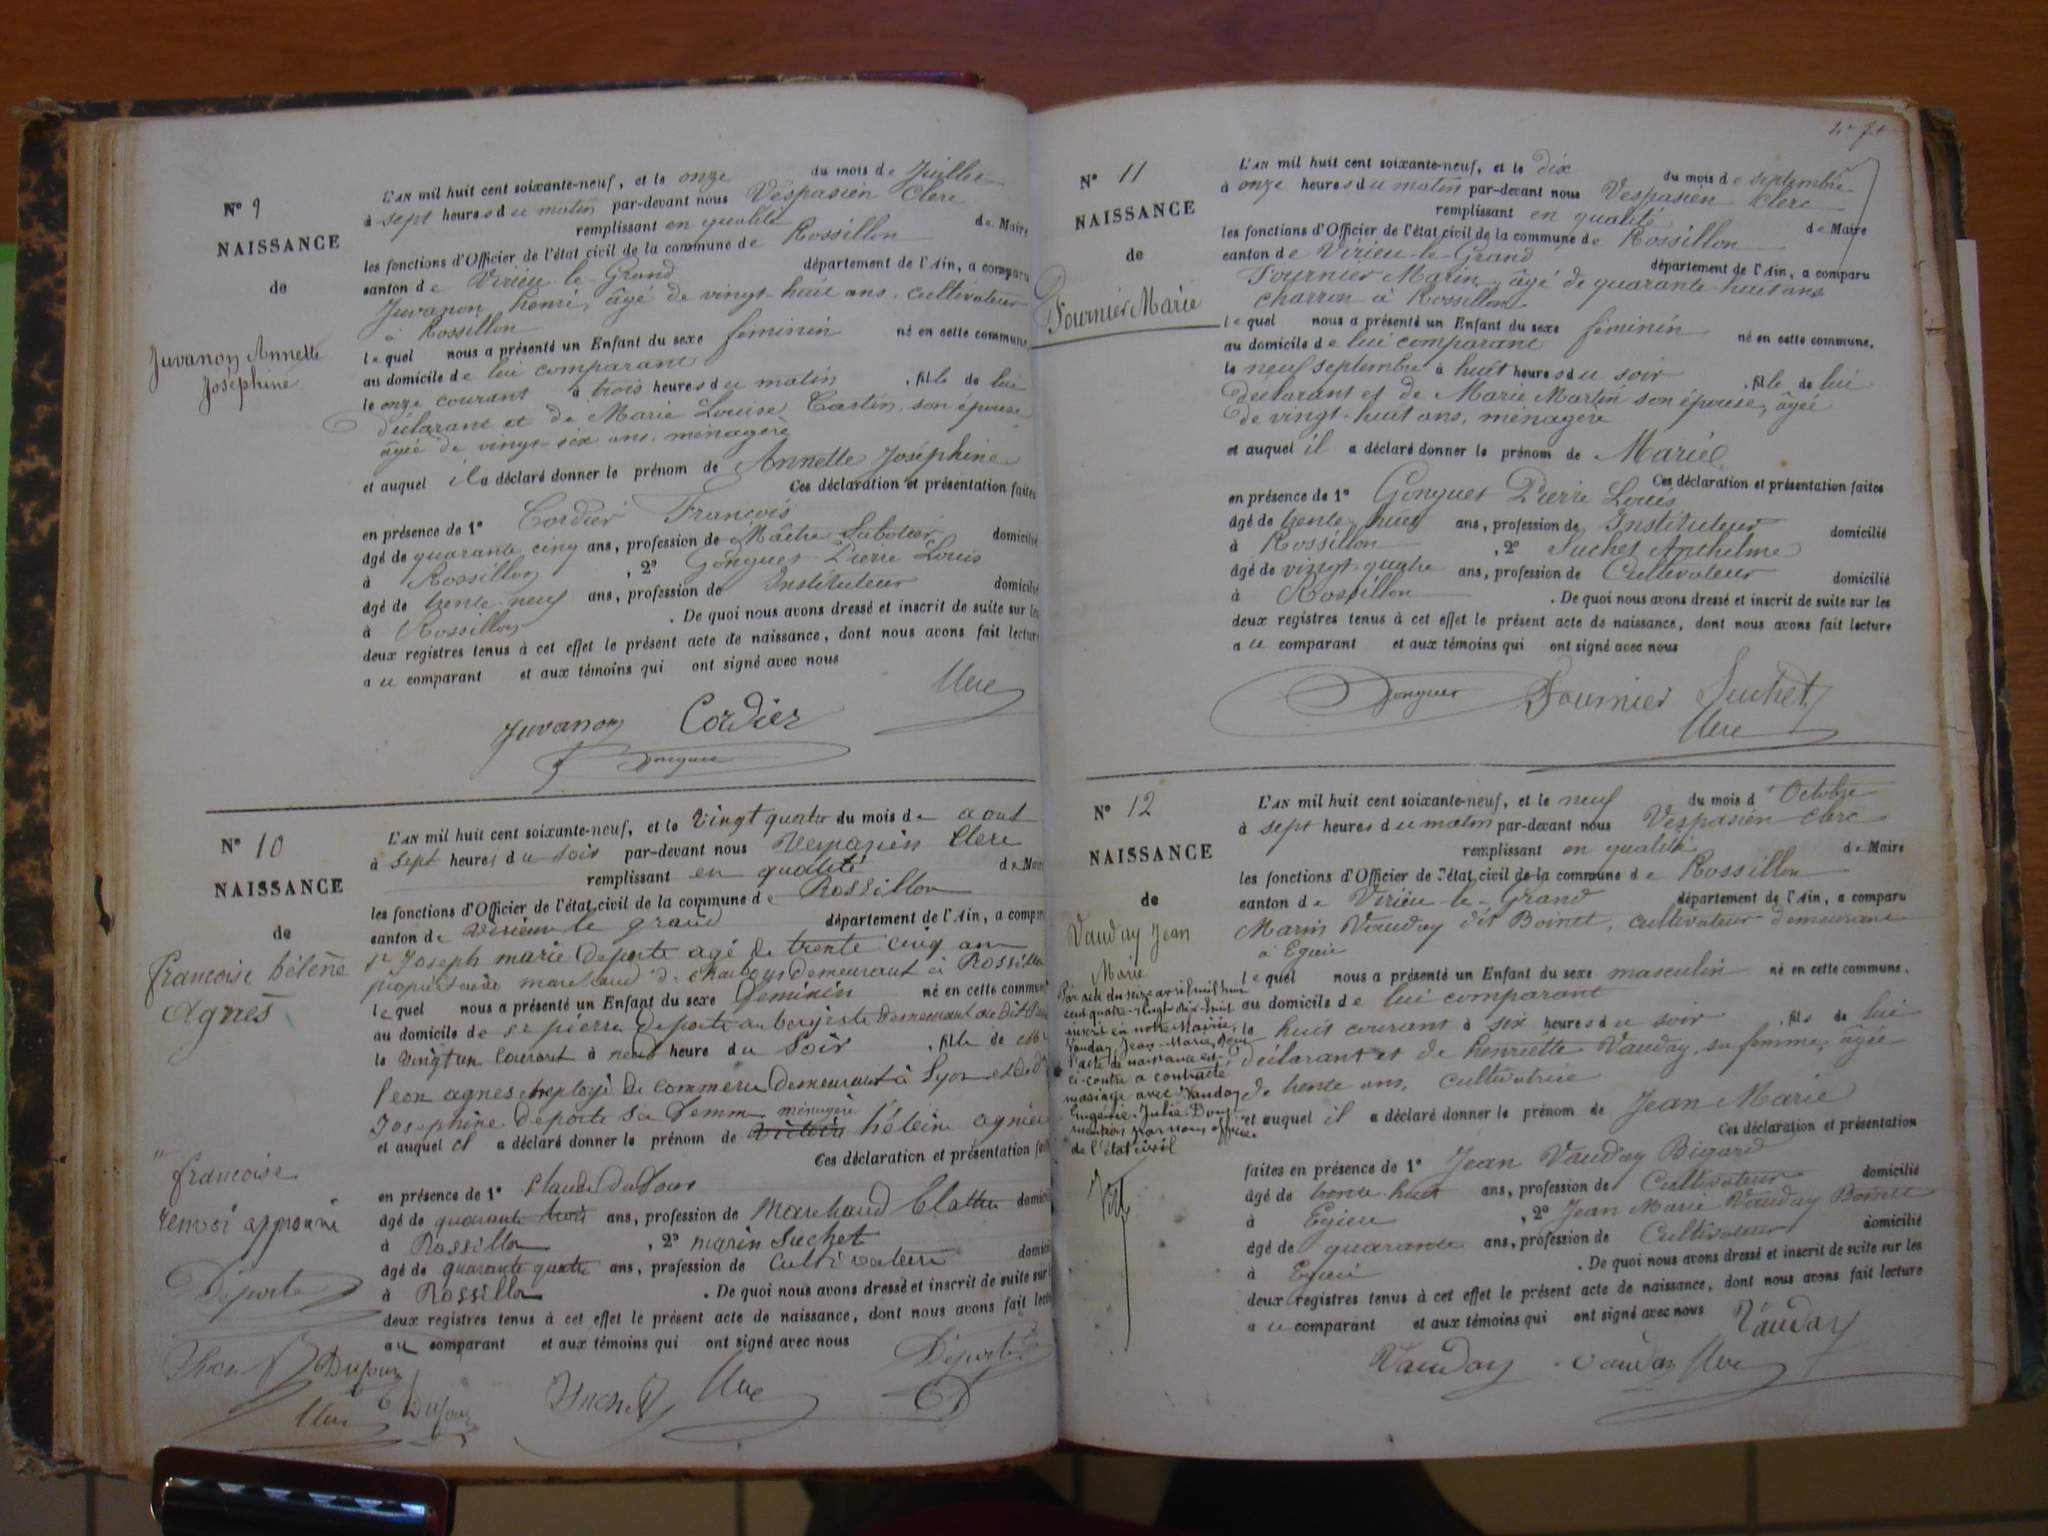 N° 9
NAISSANCE
de
Juvanon Annette
Joséphine
L'AN mil huit cent soixante-neuf, et le onze du mois de Juillet
à sept heures du matin par-devant nous Vespasien Clerc
remplissant en qualité de Maire
les fonctions d'Officier de l'état civil de la commune de Rossillon
canton de Virieu le-Grand département de l'Ain, a comparu
Juvanon henri, âgé de vingt huit ans. cultivateur
à Rossillon
lequel nous a présenté un Enfant du sexe féminin né en cette commune,
au domicile de lui comparant
le onze courant à trois heures du matin , fille de lui
déclarant et de Marie Louise Castin, son épouse
âgée de vingt-six ans, ménagère
et auquel il a déclaré donner le prénom de Annette Joséphine
Ces déclaration et présentation faites
en présence de 1° Cordier François
âgé de quarante cinq ans, profession de Maître Sabotier domicilié
à Rossillon , 2° Gonguet Pierre Louis
âgé de trente-neuf ans, profession de Instituteur domicilié
à Rossillon . De quoi nous avons dressé et inscrit de suite sur les
deux registres tenus à cet effet le présent acte de naissance, dont nous avons fait lecture
au comparant et aux témoins qui ont signé avec nous
Clerc
Juvanon Cordier
Gonguet
N° 10
NAISSANCE
de
francoise hélène
agnès
L'AN mil huit cent soixante-neuf, et le vingt quatre du mois de aout
à sept heures du soir par-devant nous Vespasien Clerc
remplissant en qualité de Maire
les fonctions d'Officier de l'état civil de la commune de Rossillon
canton de Virieu le grand département de l'Ain, a comparu
Sr Joseph marie Deporte agé de trente cinq ans
propriétaire marchand de demeurant à Rossillon
lequel nous a présenté un Enfant du sexe feminin né en cette commune
au domicile de sr pierre Deporte aubergiste demeurant au dit
le vingt un courant à neuf heure du soir , fille de
leon agnes employé de commerce demeurant à Lyon et de
Josephine Deporte sa femme ménagère
et auquel il a déclaré donner le prénom de hélène agnès
Ces déclaration et présentation faites
" francoise
renvoi approuvé
Déporte
Suchet Dufour
Clerc
en présence de 1° Claude Dufour
âgé de quarante trois ans, profession de Marchand domicilié
à Rossillon , 2° marin Suchet
âgé de quarante quatre ans, profession de Cultivateur domicilié
à Rossillon . De quoi nous avons dressé et inscrit de suite sur les
deux registres tenus à cet effet le présent acte de naissance, dont nous avons fait lecture
au comparant et aux témoins qui ont signé avec nous
Dufour Suchet Clerc Déporte
N° 11
NAISSANCE
de
Fournier Marie
L'AN mil huit cent soixante-neuf, et le dix du mois de septembre
à onze heures du matin par-devant nous Vespasien Clerc
remplissant en qualité de Maire
les fonctions d'Officier de l'état civil de la commune de Rossillon
canton de Virieu-le-Grand département de l'Ain, a comparu
Fournier Marin, âgé de quarante-huit ans
charron à Rossillon
lequel nous a présenté un Enfant du sexe féminin né en cette commune,
au domicile de lui comparant
le neuf septembre à huit heures du soir , fille de lui
déclarant et de Marie Martin son épouse, âgée
de vingt-huit ans, ménagère
et auquel il a déclaré donner le prénom de Marie
Ces déclaration et présentation faites
en présence de 1° Gonguet Pierre Louis
âgé de trente neuf ans, profession de Instituteur domicilié
à Rossillon , 2° Suchet Anthelme
âgé de vingt-quatre ans, profession de Cultivateur domicilié
à Rossillon . De quoi nous avons dressé et inscrit de suite sur les
deux registres tenus à cet effet le présent acte de naissance, dont nous avons fait lecture
au comparant et aux témoins qui ont signé avec nous
Gonguet Fournier Suchet
Clerc
N° 12
NAISSANCE
de
Vauday Jean
Marie
Par acte du seize avril mil huit
cent quatre-vingt-dix-huit
inscrit en notre Mairie,
Vauday Jean-Marie, dont
l'acte de naissance est
ci-contre a contracté
mariage avec Vauday
Eugénie-Julie. Dont
mention par nous officier
de l'état civil
L'AN mil huit cent soixante-neuf, et le neuf du mois d'Octobre
à sept heures du matin par-devant nous Vespasien Clerc
remplissant en qualité de Maire
les fonctions d'Officier de l'état civil de la commune de Rossillon
canton de Virieu-le-Grand département de l'Ain, a comparu
Marin Vauday dit Boinet, cultivateur demeurant
à Egieu
lequel nous a présenté un Enfant du sexe masculin né en cette commune,
au domicile de lui comparant
le huit courant à six heures du soir , fils de lui
déclarant et de henriette Vauday, sa femme, âgée
de trente ans, cultivatrice
et auquel il a déclaré donner le prénom de Jean Marie
Ces déclaration et présentation
faites en présence de 1° Jean Vauday Bigard
âgé de trente-huit ans, profession de Cultivateur domicilié
à Egieu , 2° Jean Marie Vauday Boinet
âgé de quarante ans, profession de Cultivateur domicilié
à Egieu . De quoi nous avons dressé et inscrit de suite sur les
deux registres tenus à cet effet le présent acte de naissance, dont nous avons fait lecture
au comparant et aux témoins qui ont signé avec nous Vauday
Vauday Vauday Clerc